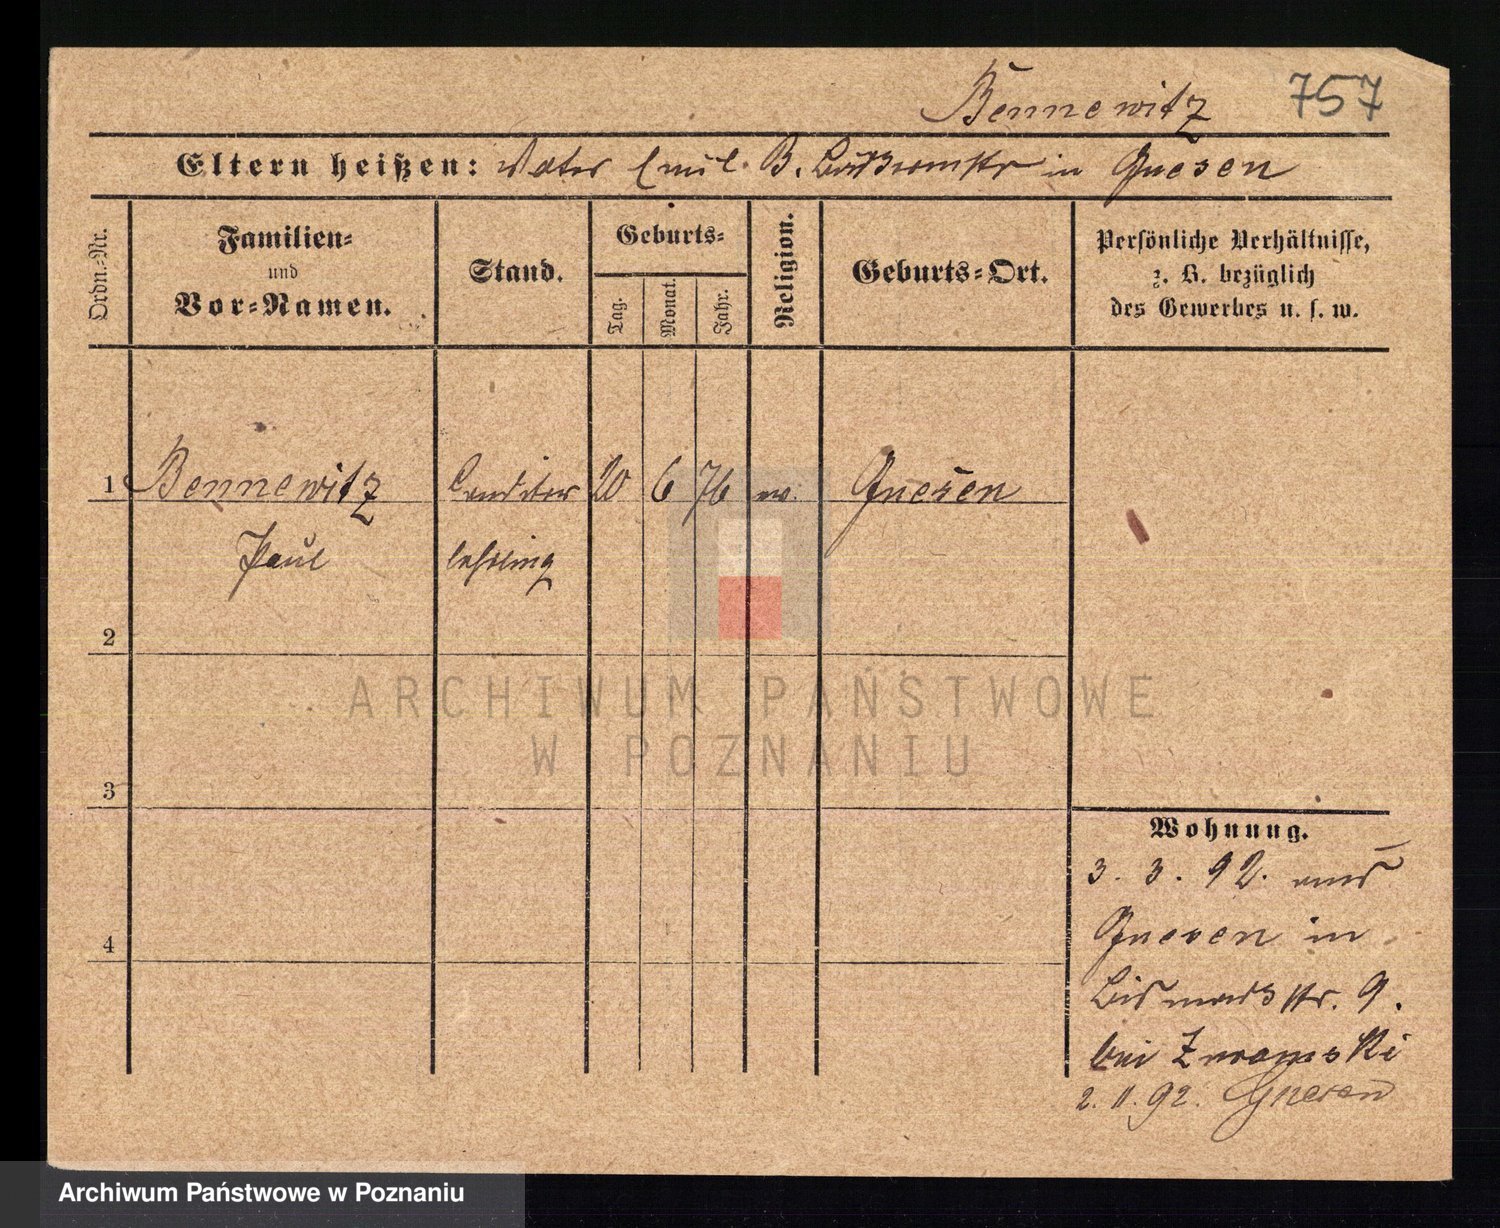 Bennewitz 757
Eltern heißen: Vater Emil B. in Gnesen
Ordn.-Nr.
Familien-
und
Vor-Namen.
Stand.
Geburts-
Tag.
Monat.
Jahr.
Religion.
Geburts-Ort.
Persönliche Verhältnisse,
z. B. bezüglich
des Gewerbes u. s. w.
1 Bennewitz Conditor 20 6 76 ev. Gnesen
Paul lehrling
2
3
4
Wohnung.
3. 3. 92. aus
Gnesen in
Bismarckstr. 9.
bei
2. 11. 92. Gnesen
ARCHIWUM PAŃSTWOWE
W POZNANIU
Archiwum Państwowe w Poznaniu